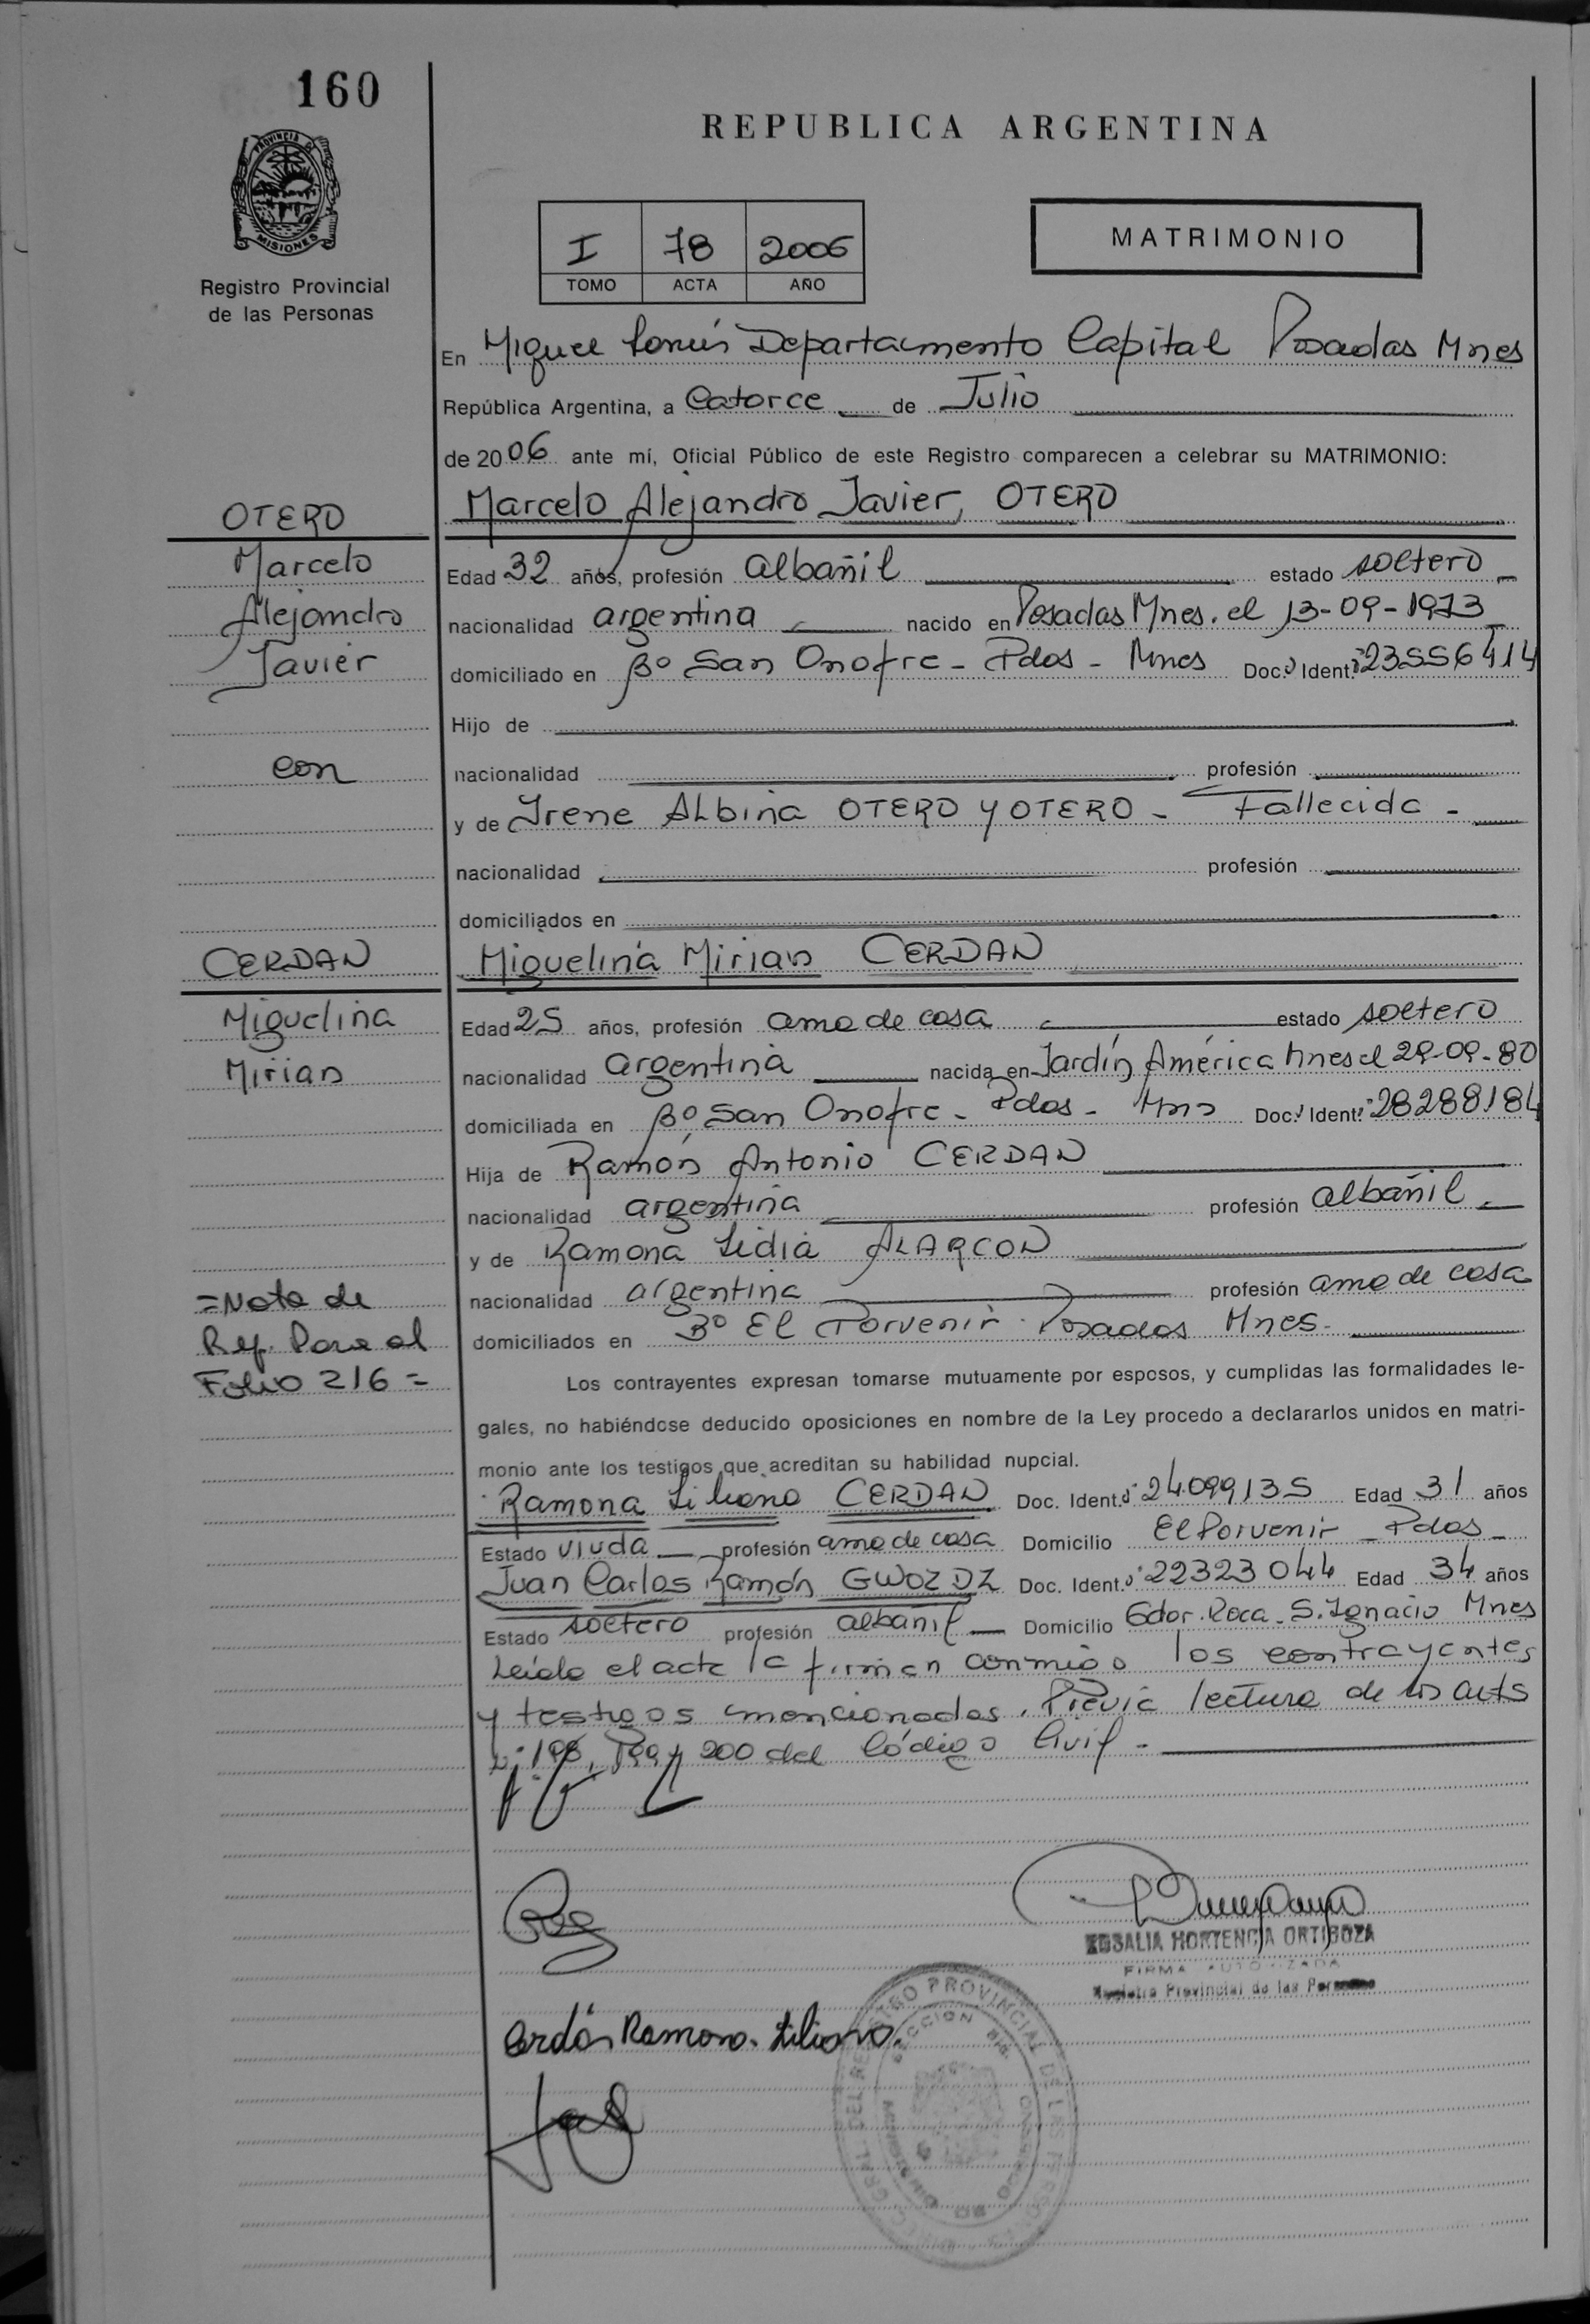 160
REPUBLICA ARGENTINA
PROVINCIA DE
MISIONES
Registro Provincial
de las Personas
I 78 2006
TOMO ACTA AÑO
MATRIMONIO
En Miguel Lanús Departamento Capital Posadas Mnes
República Argentina, a Catorce de Julio
de 2006 ante mí, Oficial Público de este Registro comparecen a celebrar su MATRIMONIO:
OTERO
Marcelo Alejandro Javier, OTERO
Marcelo
Edad 32 años, profesión albañil estado soltero
Alejandro
nacionalidad argentina nacido en Posadas Mnes. el 13-09-1973
Javier
domiciliado en Bº San Onofre - Pdas - Mnes Doc. Ident. 23556414
Hijo de
con
nacionalidad profesión
y de Irene Albina OTERO y OTERO - Fallecida -
nacionalidad profesión
domiciliados en
CERDAN
Miguelina Mirian CERDAN
Miguelina
Edad 25 años, profesión ama de casa estado soltero
Mirian
nacionalidad argentina nacida en Jardín América Mnes el 29-09-80
domiciliada en Bº San Onofre - Pdas - Mns Doc. Ident. 28288184
Hija de Ramón Antonio CERDAN
nacionalidad argentina profesión albañil -
y de Ramona Lidia ALARCON
=Nota de
nacionalidad argentina profesión ama de casa
Ref. Pasa al
domiciliados en Bº El Porvenir Posadas Mnes.
Folio 216=
Los contrayentes expresan tomarse mutuamente por esposos, y cumplidas las formalidades le-
gales, no habiéndose deducido oposiciones en nombre de la Ley procedo a declararlos unidos en matri-
monio ante los testigos que acreditan su habilidad nupcial.
Ramona Liliana CERDAN Doc. Ident. 24099135 Edad 31 años
Estado viuda profesión ama de casa Domicilio El Porvenir - Pdas -
Juan Carlos Ramón GWOZDZ Doc. Ident. 22323044 Edad 34 años
Estado soltero profesión albañil Domicilio Gdor. Roca - S. Ignacio Mnes
Leída el acta la firman conmigo los contrayentes
y testigos mencionados. Previa lectura de los arts
198, 199 y 200 del Código Civil -
ROSALIA HORTENCIA ORTIGOZA
FIRMA AUTORIZADA
Registro Provincial de las Personas
Cerdán Ramona Liliana.